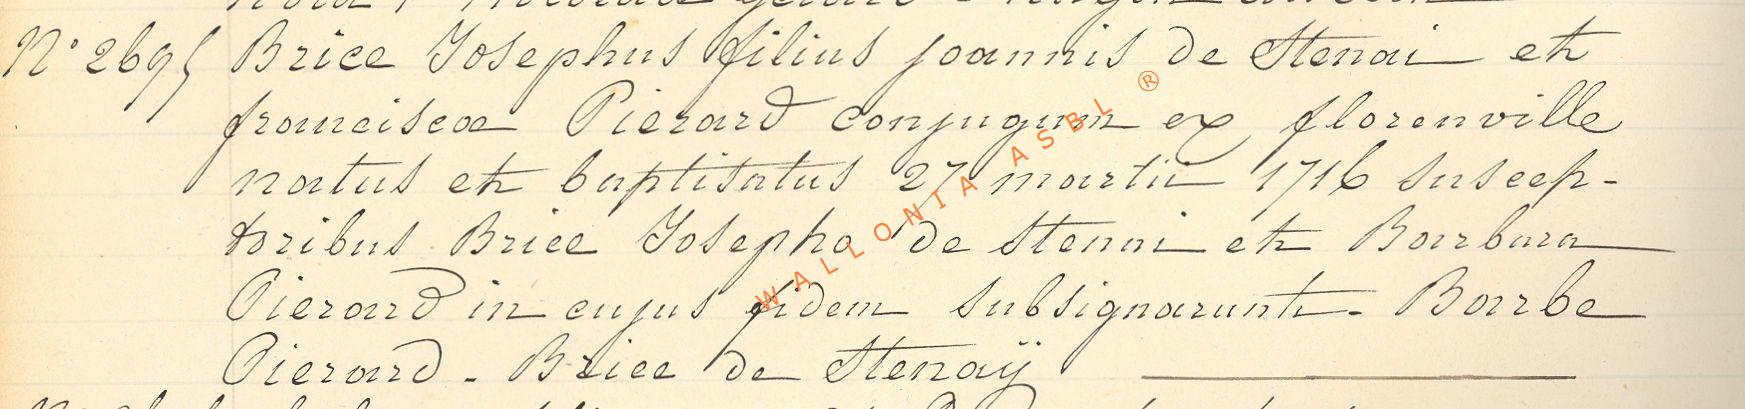 N° 2695 Brice Josephus filius joannis de Stenai et
francisca Pierard conjugum ex florenville
natus et baptisatus 27 martii 1716 suscep-
toribus Brice Josepho de Stenai et Barbara
Pierard in cujus fidem subsignarunt. Barbe
Pierard. Brice de Stenaÿ
WALLONIA ASBL ®